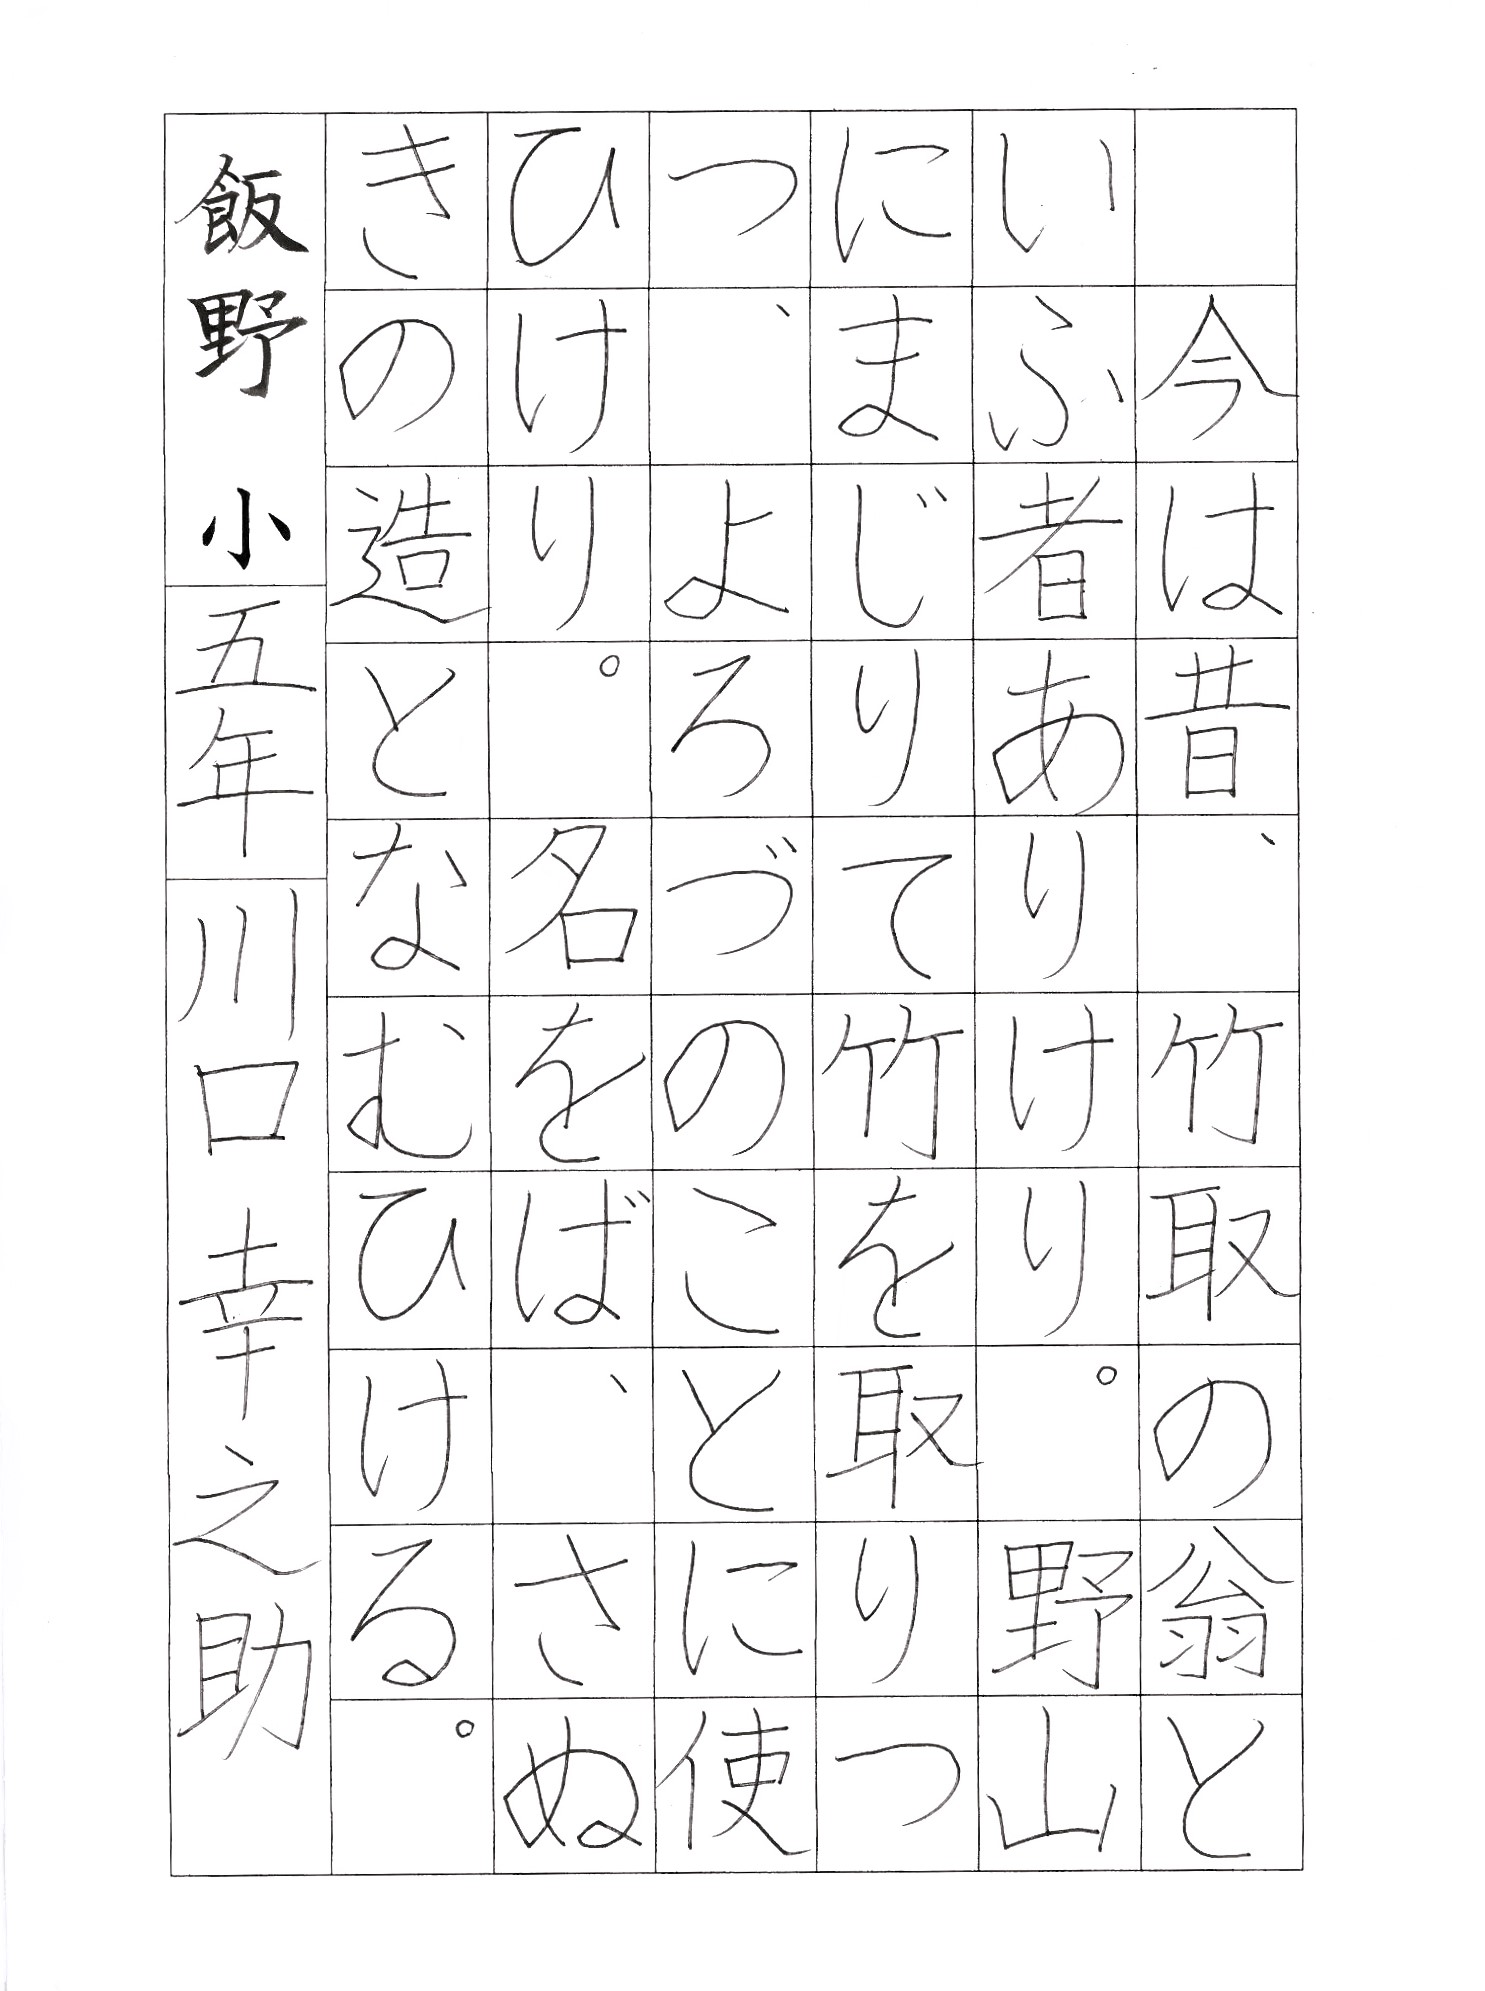 今は昔、竹取の翁と
いふ者ありけり。野山
にまじりて竹を取りつ
つ、よろづのことに使
ひけり。名をば、さぬ
きの造となむひける。
飯野小五年川口幸之助